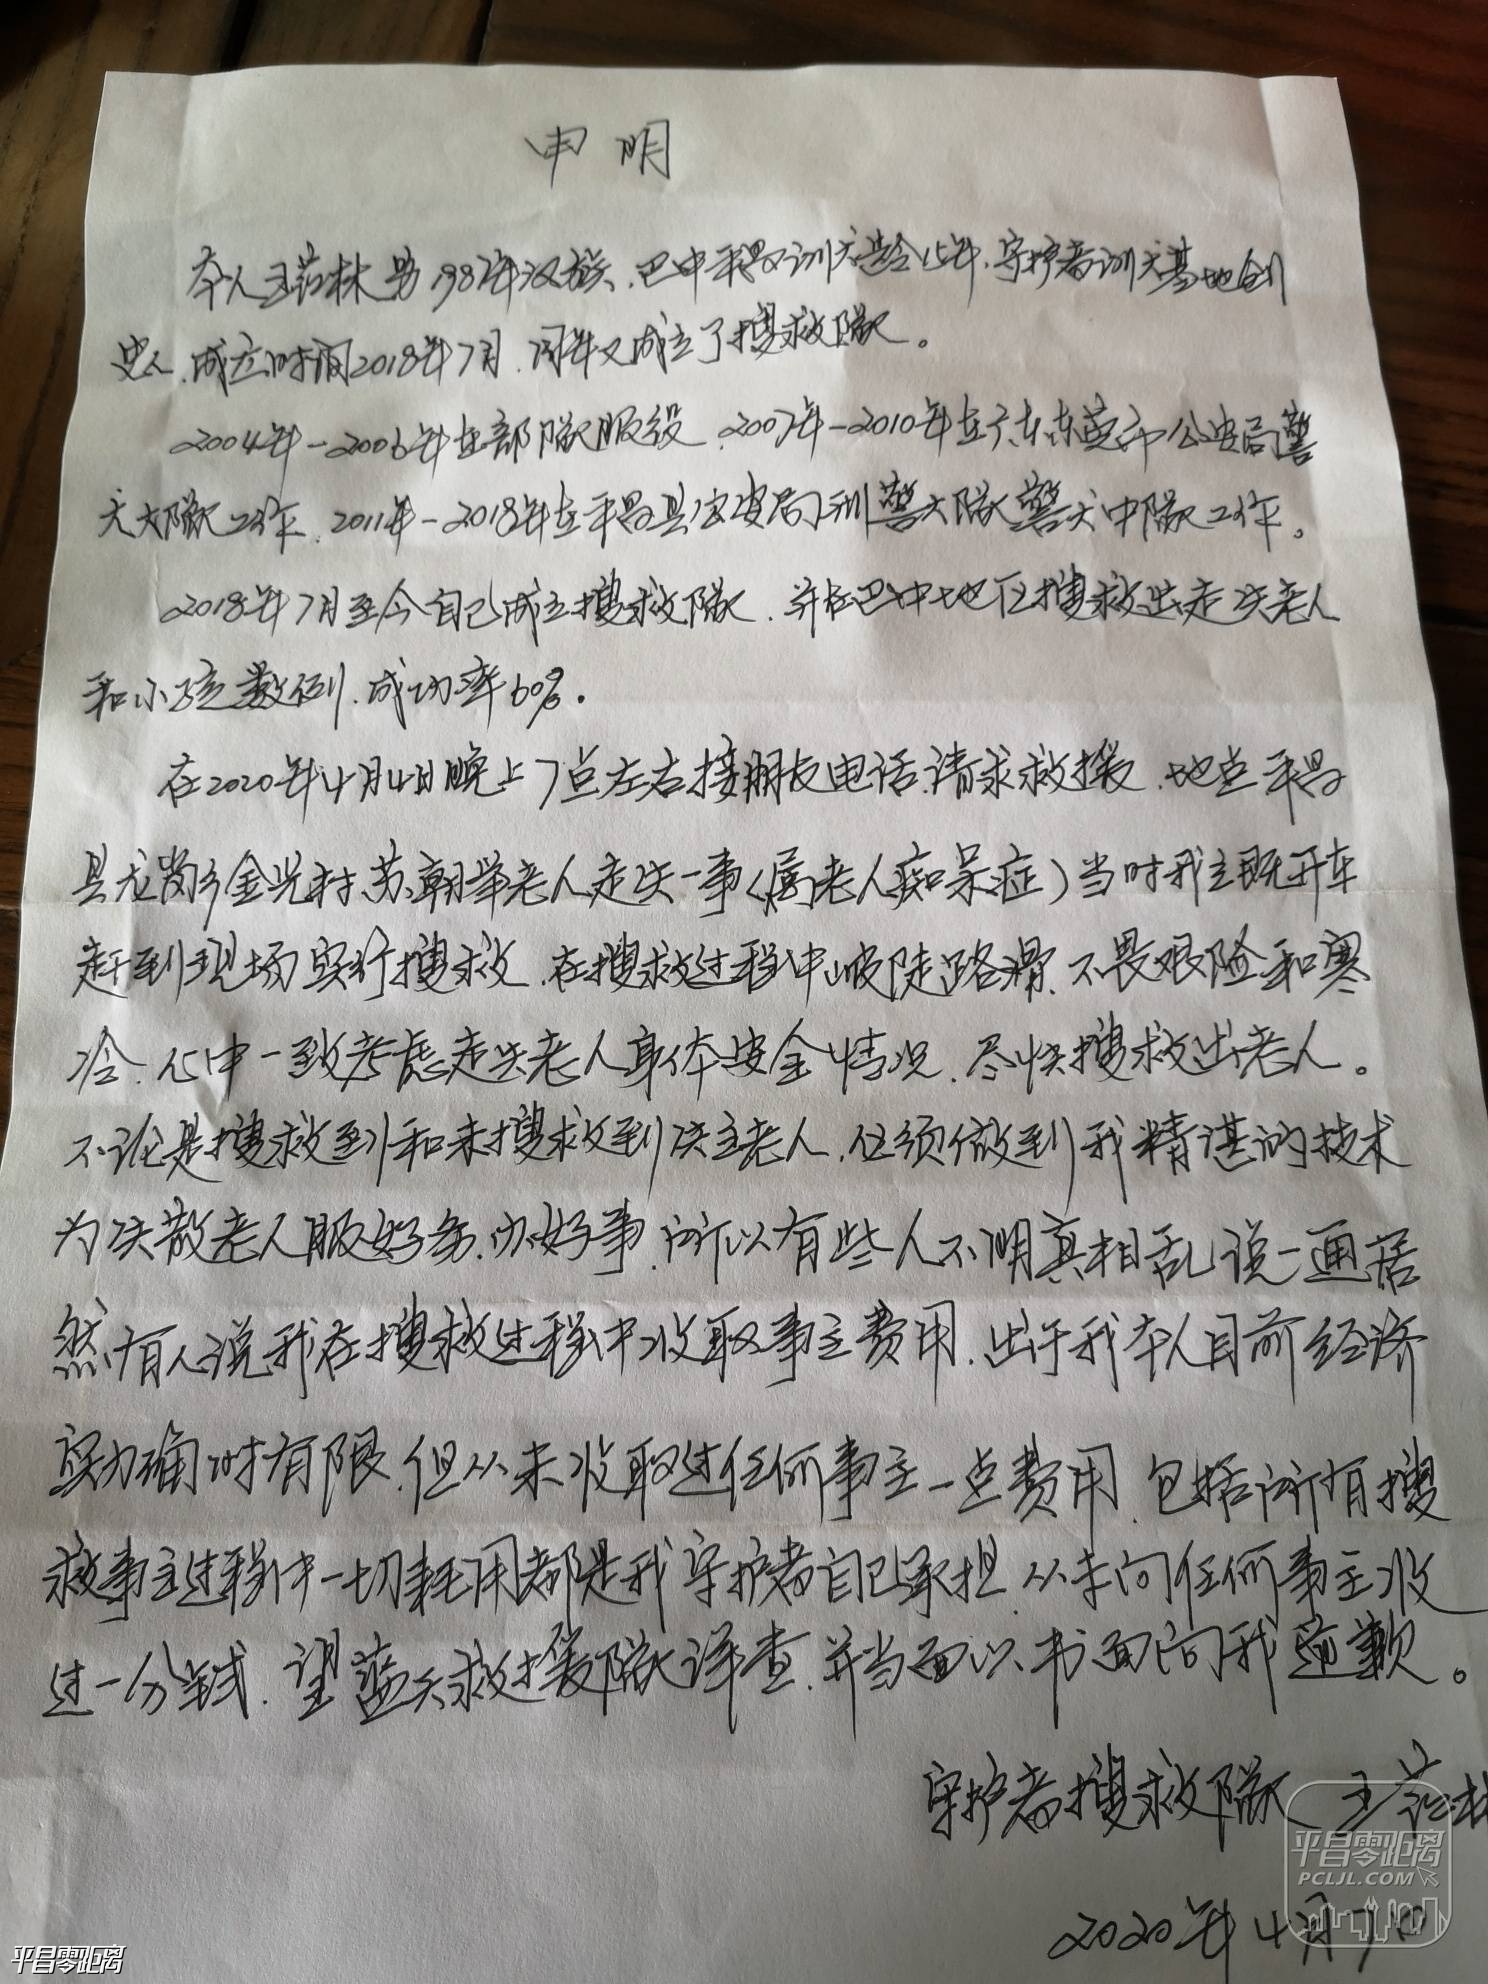 申明
本人王范林男1987年汉族、巴中平昌人训犬龄15年、守护者训犬基地创
史人、成立时间2018年7月、同年又成立了搜救队。
2004年-2006年在部队服役、2007年-2010年在广东东莞市公安局警
犬大队工作、2011年-2018年在平昌县公安局刑警大队警犬中队工作。
2018年7月至今自己成立搜救队、并在巴中地区搜救出走失老人
和小孩数例、成功率60%。
在2020年4月4日晚上7点左右接朋友电话、请求救援、地点平昌
县龙岗乡金光村、苏朝举老人走失一事(属老人痴呆症)当时我立既开车
赶到现场实行搜救、在搜救过程中坡陡路滑、不畏艰险和寒
冷、心中一致考虑走失老人身体安全情况、尽快搜救出老人。
不论是搜救到和未搜救到失主老人、必须做到我精湛的技术
为失散老人服好务、办好事、所以有些人不明真相乱说一通居
然有人说我在搜救过程中收取事主费用、出于我本人目前经济
实力确时有限、但从未收取过任何事主一点费用、包括所有搜
救事主过程中一切耗用都是我守护者自己承担、从未向任何事主收
过一分钱、望蓝天救援队详查、并当面以书面向我道歉。
守护者搜救队 王范林
2020年4月7日
平昌零距离
PCLJL.COM
平昌零距离